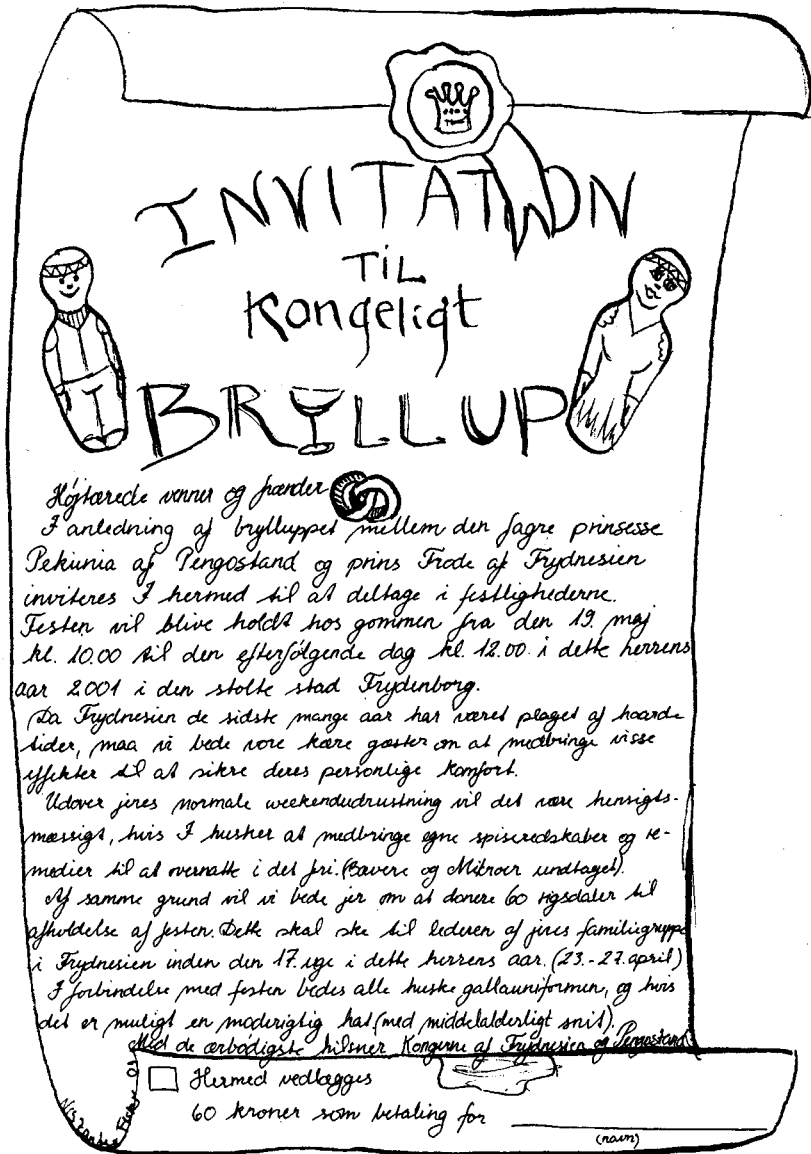 INVITATION
TIL
Kongeligt
BRYLLUP
Højtærede venner og frænder
I anledning af brylluppet mellem den fagre prinsesse
Pekunia af Pengostand og prins Frode af Frydnesien
inviteres I hermed til at deltage i festlighederne.
Festen vil blive holdt hos gommen fra den 19. maj
kl. 10.00 til den efterfølgende dag kl. 12.00 i dette herrens
aar 2001 i den stolte stad Frydenborg.
Da Frydnesien de sidste mange aar har været plaget af haarde
tider, maa vi bede vore kære gæster om at medbringe visse
effekter til at sikre deres personlige komfort.
Udover jires normale weekendudrustning vil det være hensigts-
mæssigt, hvis I husker at medbringe egne spiseredskaber og re-
medier til at overnatte i det fri. (Bævere og Mikroer undtaget).
Af samme grund vil vi bede jer om at donere 60 rigsdaler til
afholdelse af festen. Dette skal ske til lederen af jires familiegruppe
i Frydnesien inden den 17. uge i dette herrens aar. (23.-27. april)
I forbindelse med festen bedes alle huske gallauniformen, og hvis
det er muligt en moderigtig hat (med middelalderligt snit).
Med de ærbødigste hilsner Kongerne af Frydnesien og Pengostand.
Hermed vedlægges
60 kroner som betaling for
(navn)
01